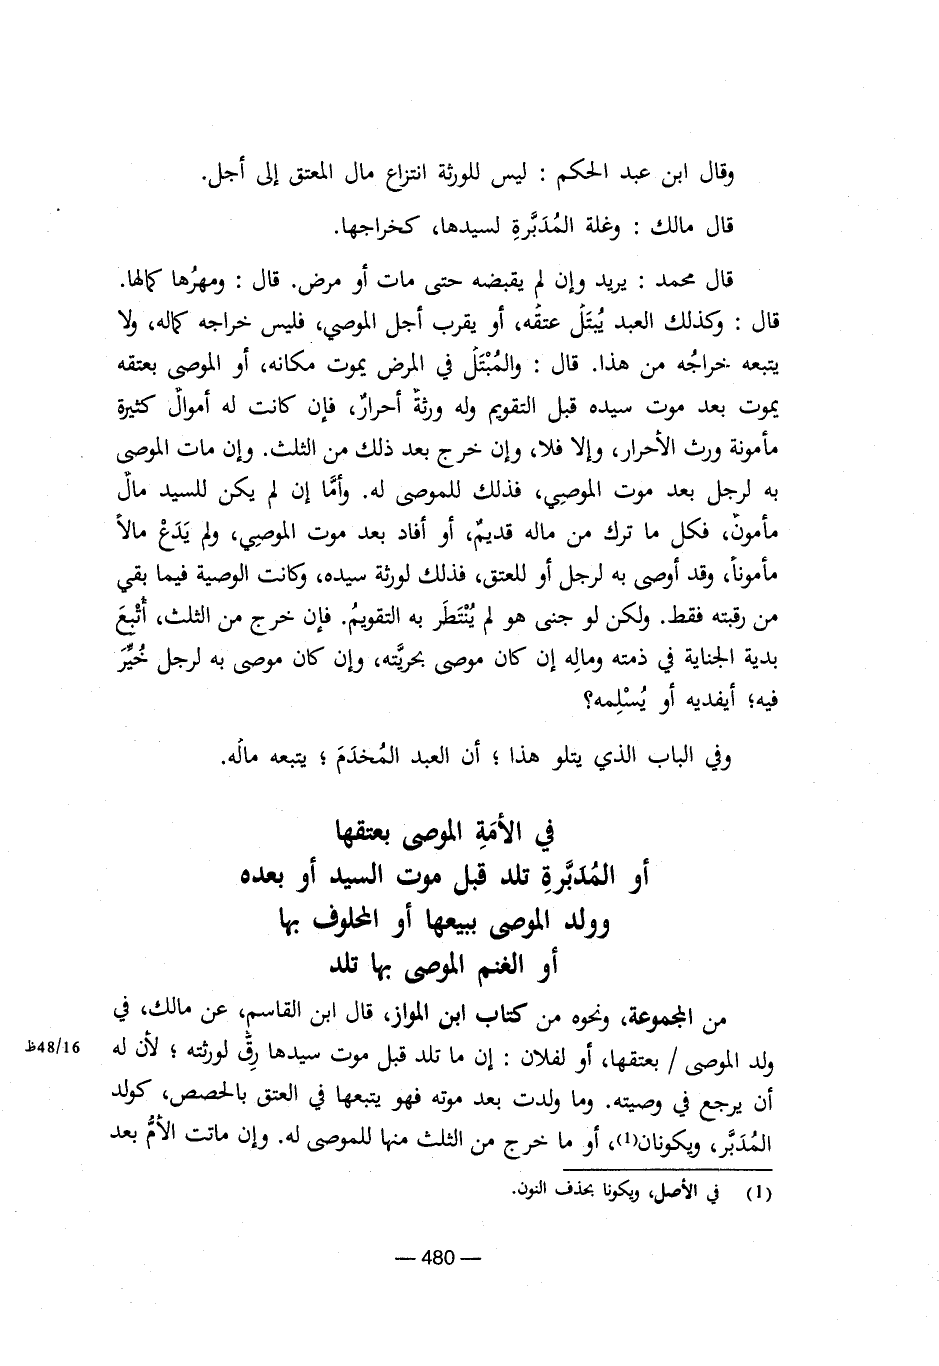 وقال ابن عبد الحكم : ليس للورثة انتزاع مال المعتق إلى أجل.
قال مالك : وغلة المُدَبَّرةِ لسيدها، كخراجها.
قال محمد : يريد وإن لم يقبضه حتى مات أو مرض. قال : ومهرُها كمالها.
قال : وكذلك العبد يُبتَلُ عتقُه، أو يقرب أجل الموصي، فليس خراجه كماله، ولا
يتبعه خراجُه من هذا. قال : والمُبْتَلُ في المرض يموت مكانه، أو الموصى بعتقه
يموت بعد موت سيده قبل التقويم وله ورثةٌ أحرارٌ، فإن كانت له أموالٌ كثيرة
مأمونة ورث الأحرار، وإلا فلا، وإن خرج بعد ذلك من الثلث. وإن مات الموصى
به لرجل بعد موت الموصِي، فذلك للموصى له. وأمَّا إن لم يكن للسيد مالٌ
مأمونٌ، فكل ما ترك من ماله قديمٌ، أو أفاد بعد موت الموصِي، ولم يَدَعْ مالاً
مأموناً، وقد أوصى به لرجل أو للعتق، فذلك لورثة سيده، وكانت الوصية فيما بقي
من رقبته فقط. ولكن لو جنى هو لم يُنْتَطَر به التقويمُ. فإن خرج من الثلث، أُتْبِعَ
بدية الجناية في ذمته ومالِه إن كان موصى بحريَّته، وإن كان موصى به لرجل خُيِّرَ
فيه؛ أيفديه أو يُسْلِمه؟
وفي الباب الذي يتلو هذا ؛ أن العبد المُخدَمَ ؛ يتبعه مالُه.
في الأمَةِ الموصى بعتقها
أو المُدَبَّرةِ تلد قبل موت السيد أو بعده
وولد الموصى ببيعها أو المحلوف بها
أو الغنم الموصى بها تلد
من المجموعة، ونحوه من كتاب ابن المواز، قال ابن القاسم، عن مالك، في
ولد الموصى / بعتقها، أو لفلان : إن ما تلد قبل موت سيدها رِقٌّ لورثته ؛ لأن له
48/16ظ
أن يرجع في وصيته. وما ولدت بعد موته فهو يتبعها في العتق بالحصص، كولد
المُدَبَّر، ويكونان(1)، أو ما خرج من الثلث منها للموصى له. وإن ماتت الأمُّ بعد
(1) في الأصل، ويكونا بحذف النون.
— 480 —